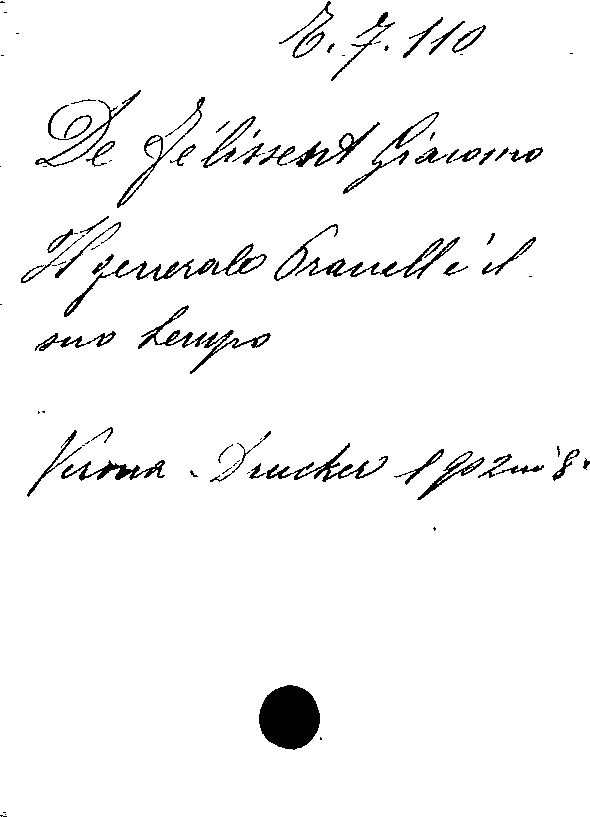 E. 7. 110
De Félissent Giacomo
Il generale Pianell e il
suo tempo
Verona - Drucker 1902 in 8°